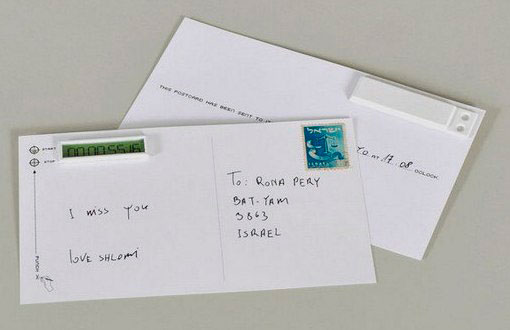 THIS POSTCARD HAS BEEN SENT TO
17 08 OCLOCK
START
STOP
00:00:55.15
PUSH
I MISS YOU
LOVE SHLOMI
ישראל
TO: RONA PERY
BAT-YAM
3863
ISRAEL